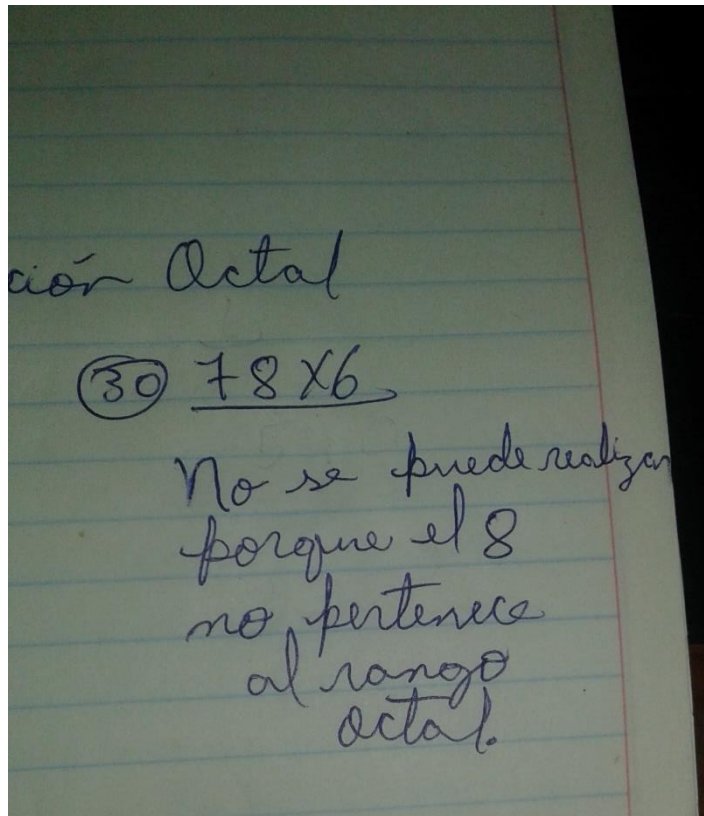 ción Octal
30 78x6
No se puede realizar
porque el 8
no pertenece
al rango
octal.